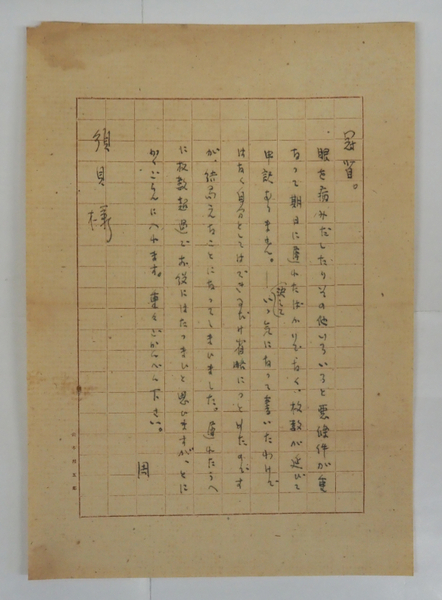 冠省。
眼を病みだしたりその他いろいろと悪條件が重
なって期日に遅れたばかりでなく、枚数が延びて
申訳ありません。― 決していゝ気になって書いたわけで
はなく自分としてはできるだけ省略につとめたのです
が、結局こんなことになってしまいました。遅れたうへ
に枚数超過でお役にはたつまいと思ひますが、とに
かくごらんに入れます。重ねておゆるし下さい。
周
須貝様